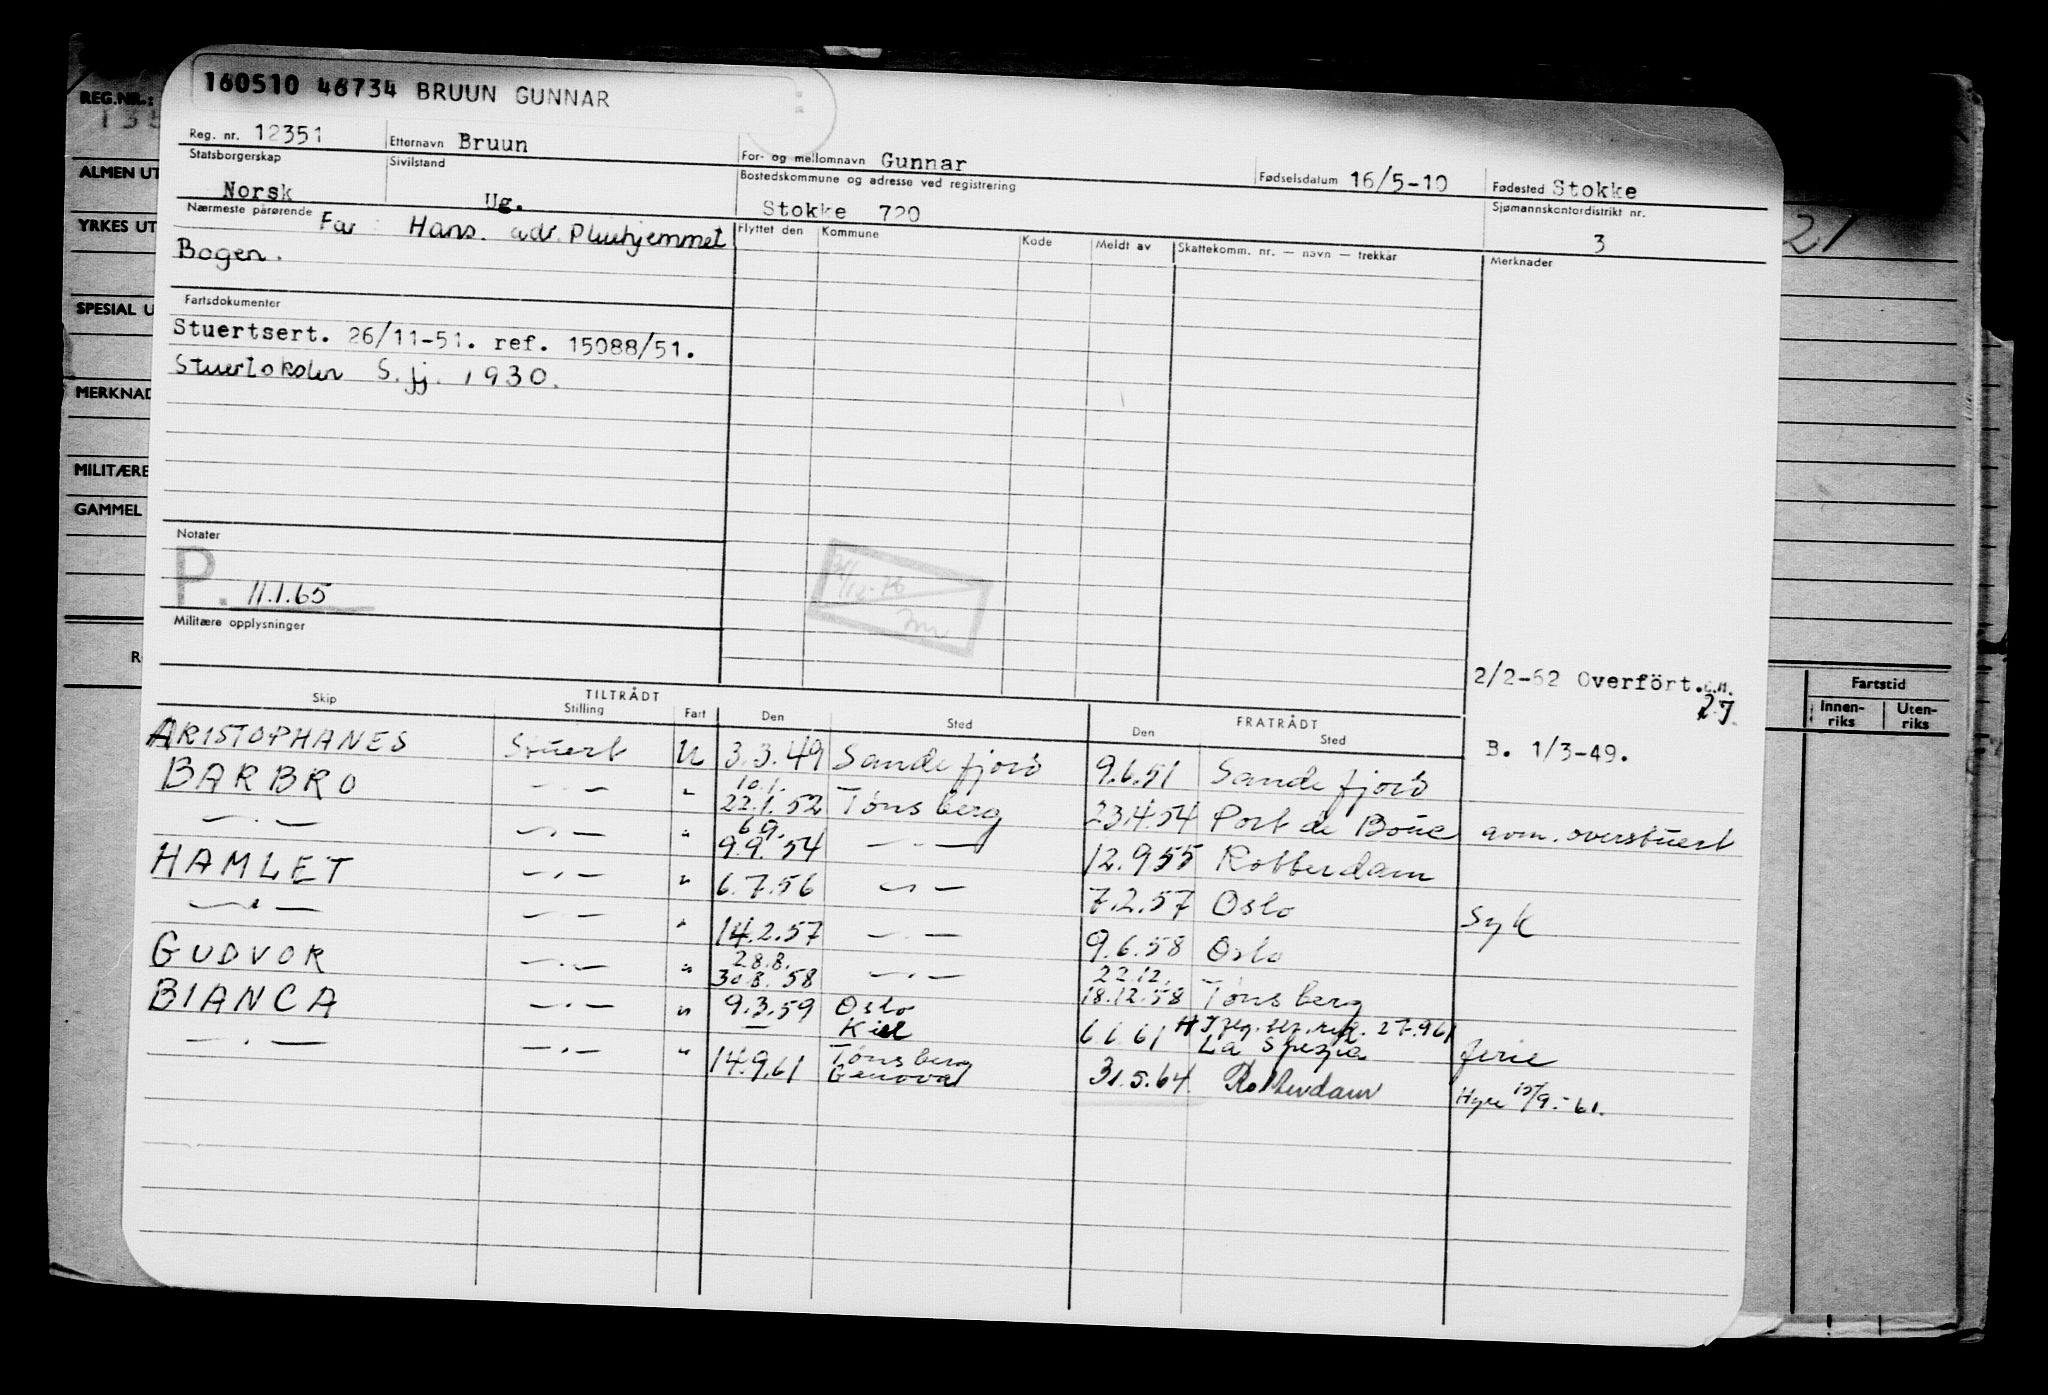 160510 46734 BRUUN GUNNAR
REG.NR.:
ALMEN UT
YRKES UT
SPESIAL U
MERKNAD
MILITÆRE
GAMMEL
21
Reg. nr. 12351 Etternavn Bruun For- og mellomnavn Gunnar Fødselsdatum 16/5-10 Fødested Stokke
Statsborgerskap Sivilstand Bostedskommune og adresse ved registrering Sjømannskontordistrikt nr.
Norsk Ug. Stokke 720 3
Nærmeste pårørende Far Hans. adr. Pleiehjemmet
Bogen.
Flyttet den Kommune Kode Meldt av Skattekomm. nr. — navn — trekkar Merknader
Fartsdokumenter
Stuertsert. 26/11-51. ref. 15088/51.
Stuertskolen S.fj. 1930.
Notater
P. 11.1.65
Militære opplysninger
2/2-62 Overfört.
Fartstid
Innen-riks Uten-riks
TILTRÅDT FRATRÅDT
Skip Stilling Fart Den Sted Den Sted
B. 1/3-49.
ARISTOPHANES Stuert U 3.3.49 Sandefjord 9.6.51 Sandefjord
10.1.
BARBRO —.— " 22.1.52 Tønsberg 23.4.54 Port de Bouc avm. overstuert
6.9.
—.— —.— " 9.9.54 —.— 12.9.55 Rotterdam
HAMLET —.— " 6.7.56 —.— 7.2.57 Oslo Syk
—.— —.— " 14.2.57 —.— 9.6.58 Oslo
28.8. 22.12.
GUDVOR —.— " 30.8.58 —.— 18.12.58 Tønsberg
BIANCA —.— " 9.3.59 Oslo
— Kiel 6.6.61 La Spezia ferie
27.9.61
—.— —.— " 14.9.61 Tønsberg 31.5.64 Rotterdam Hyre 15/9.-61.
Genova